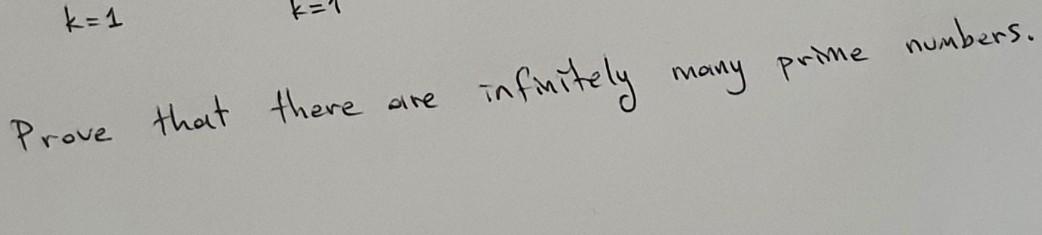 k=1 k=1
Prove that there are infinitely many prime numbers.